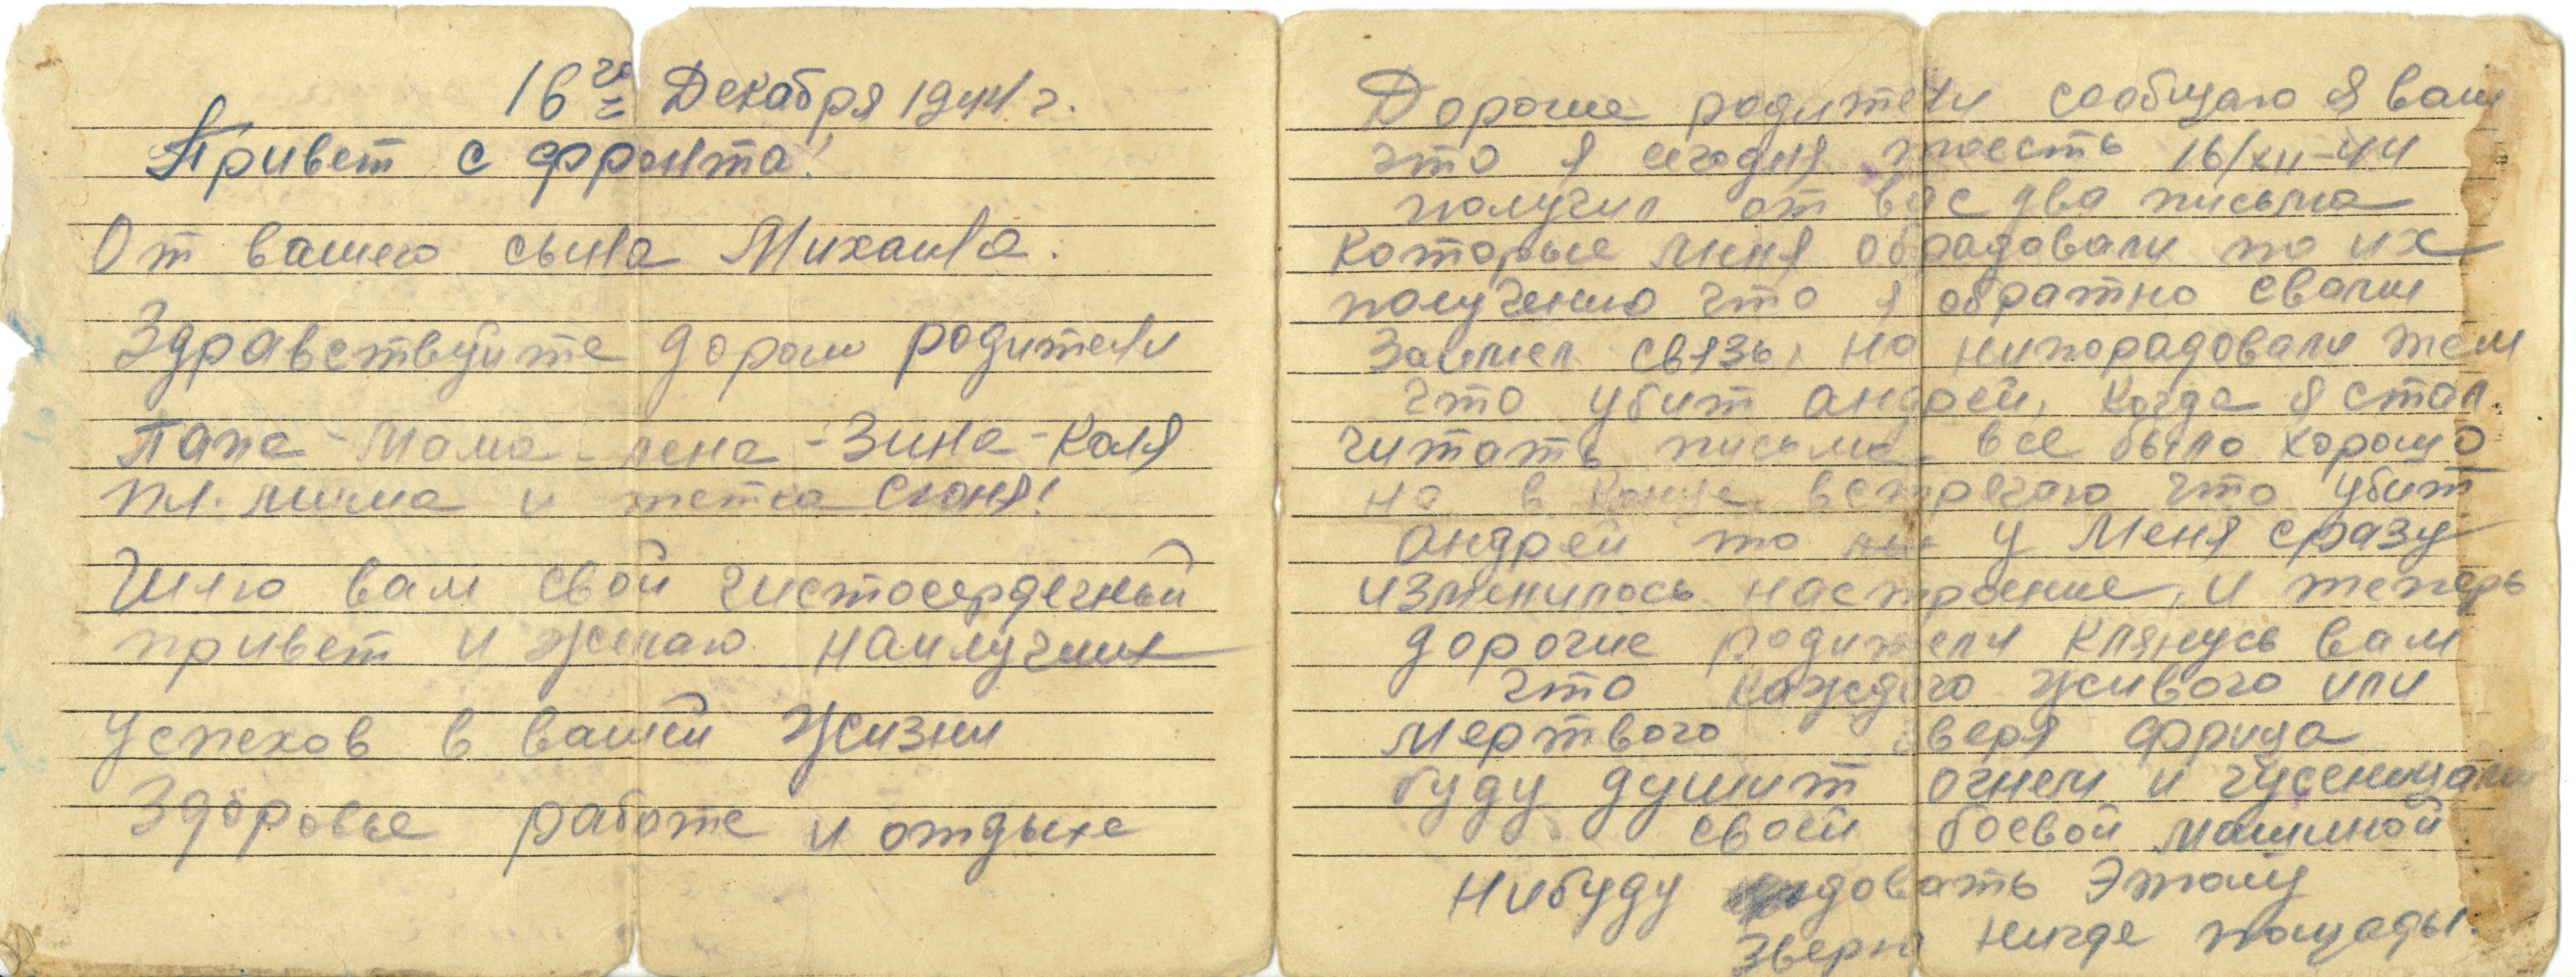 16го Декабря 1944 г.
Привет с фронта!
От вашего сына Михаила.
Здравствуйте дороги родители
Папа - Мама - лена - Зина - Коля
и тетка Сюня!
Шлю вам свой чистосердечный
привет и желаю наилучших
успехов в вашей жизни
Здоровье работе и отдыхе
Дорогие родители сообщаю я вам
что я сегодня тоесть 16/XII-44
получил от вас два письма
которые меня обрадовали по их
получению что я обратно свами
Заимел связь, но нипорадовали тем
что убит андрей, когда я стал
читать письма все было хорошо
но в конце встречаю что убит
андрей то у меня сразу
изменилось настроение, и теперь
дорогие родители клянусь вам
что каждого живого или
мертвого зверя фрица
буду душит огнем и гусеницами
своей боевой машиной
Нибуду довать Этому
зверю нигде пощады.